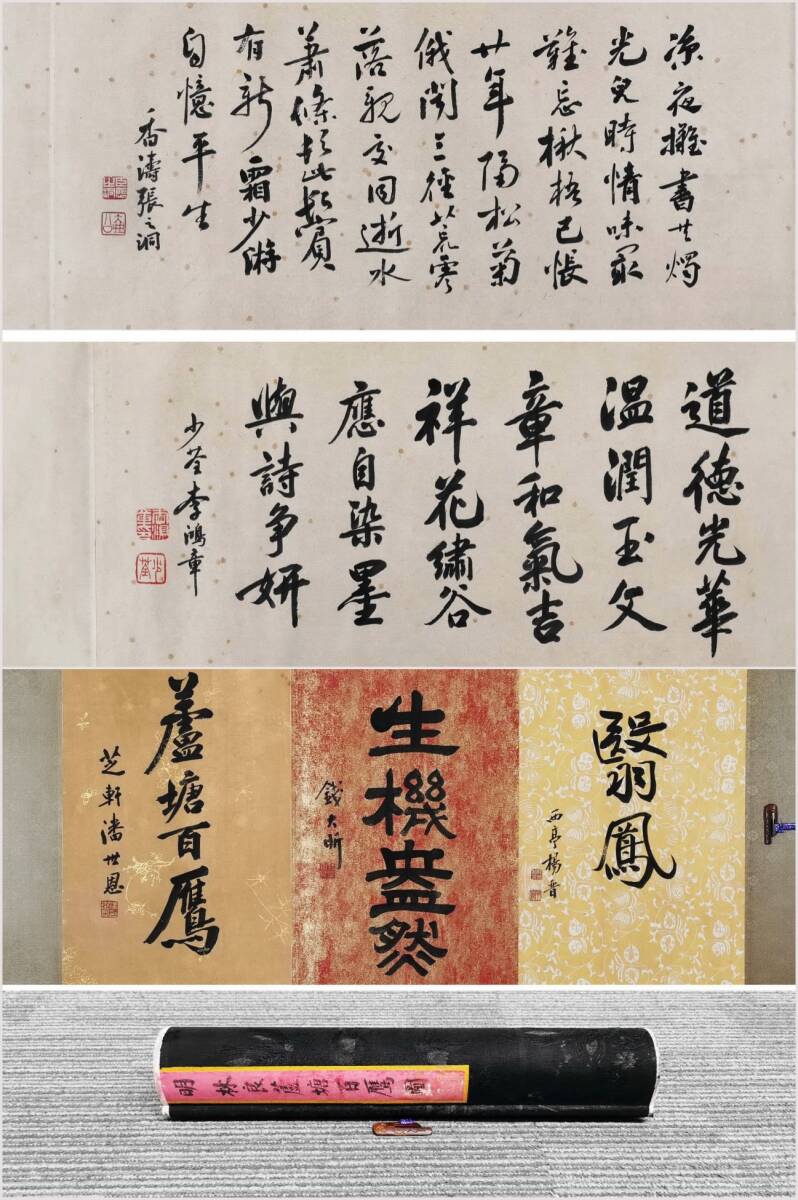 涼夜擁書共燭
光兒時情味最
難忘楸梧已悵
廿年隔松菊
俄聞三徑荒零
落親交同逝水
蕭條此鬢
有新霜少游
自憶平生
香濤張之洞
道德光華
温潤玉文
章和氣吉
祥花繡谷
應自染墨
與詩爭妍
少荃李鴻章
少荃
翳鳳
西亭楊晉
生機盎然
錢大昕
蘆塘百鷹
芝軒潘世恩
明林良蘆塘百鷹圖